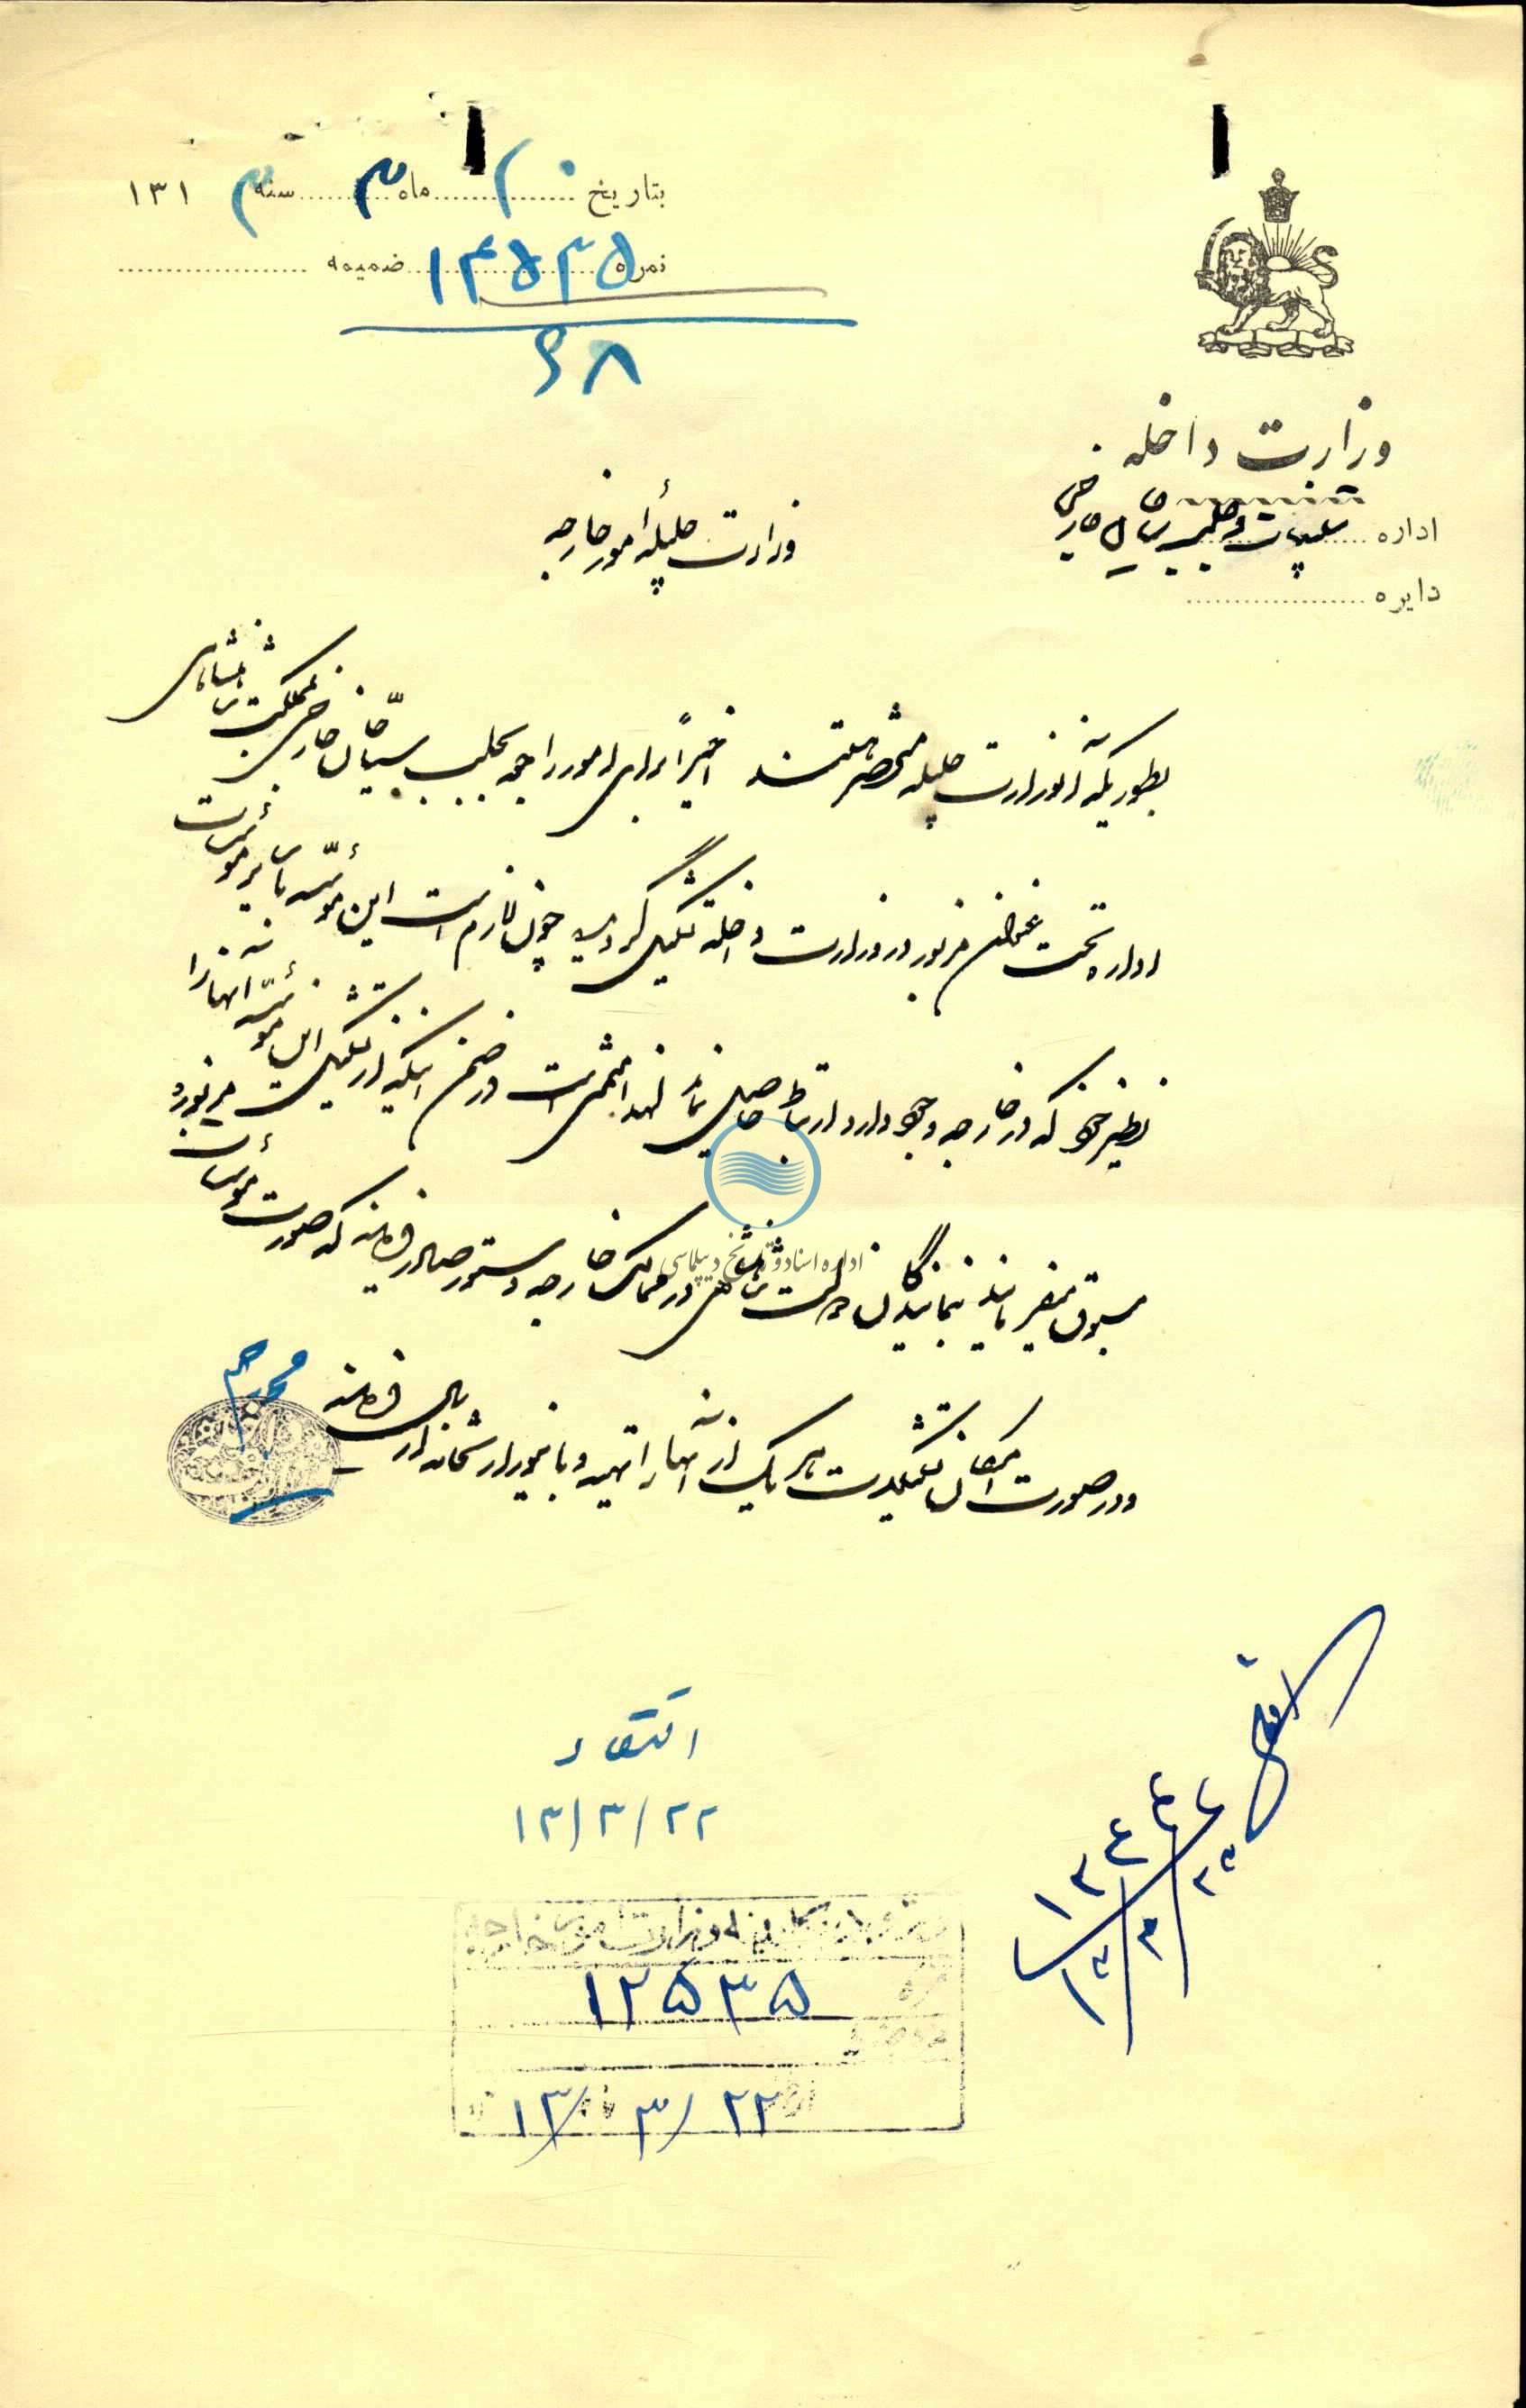 بتاریخ ۲۰ ماه ۳ سنه ۱۳۱۳
نمره ۱۴۵۳۵ ضمیمه
۶۸
وزارت داخله
اداره جلب سیاحان خارجی
دایره
وزارت جلیلهٔ امور خارجه
بطوریکه آنوزارت جلیله مستحضر هستند اخیراً برای امور راجعه بجلب سیّاحان خارجی بمملکت شاهنشاهی
اداره تحت عنوان مزبور در وزارت داخله تشکیل گردیده چون لازم است این مؤسّسه با سایر مؤسسات
نظیر خود که در خارجه وجود دارد ارتباط حاصل نماید لهذا متمنی است در ضمن اینکه از تشکیل این مؤسسه آنها را
مسبوق میفرمایند بنمایندگان دولت شاهنشاهی در ممالک خارجه دستور صادر فرمایند که صورت مؤسسات مزبوره
و در صورت امکان تشکیلات هر یک از آنها را تهیه و باینوزارتخانه ارسال فرمایند
۱۳/۳/۲۲
اداره اسناد و تاریخ دیپلماسی
کابینه وزارت امور خارجه
نمره ۱۲۵۳۵
۱۳/۳/۲۲